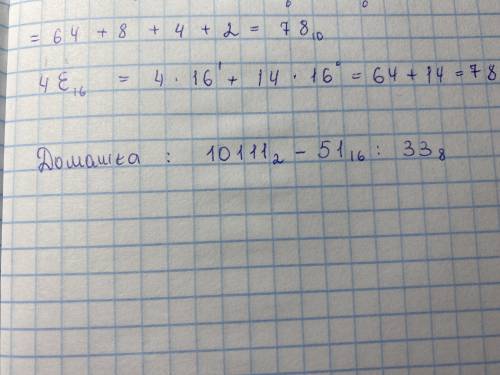 = 64 + 8 + 4 + 2 = 78₁₀
4E₁₆ = 4 · 16¹ + 14 · 16⁰ = 64 + 14 = 78
Домашка : 10111₂ - 51₁₆ : 33₈